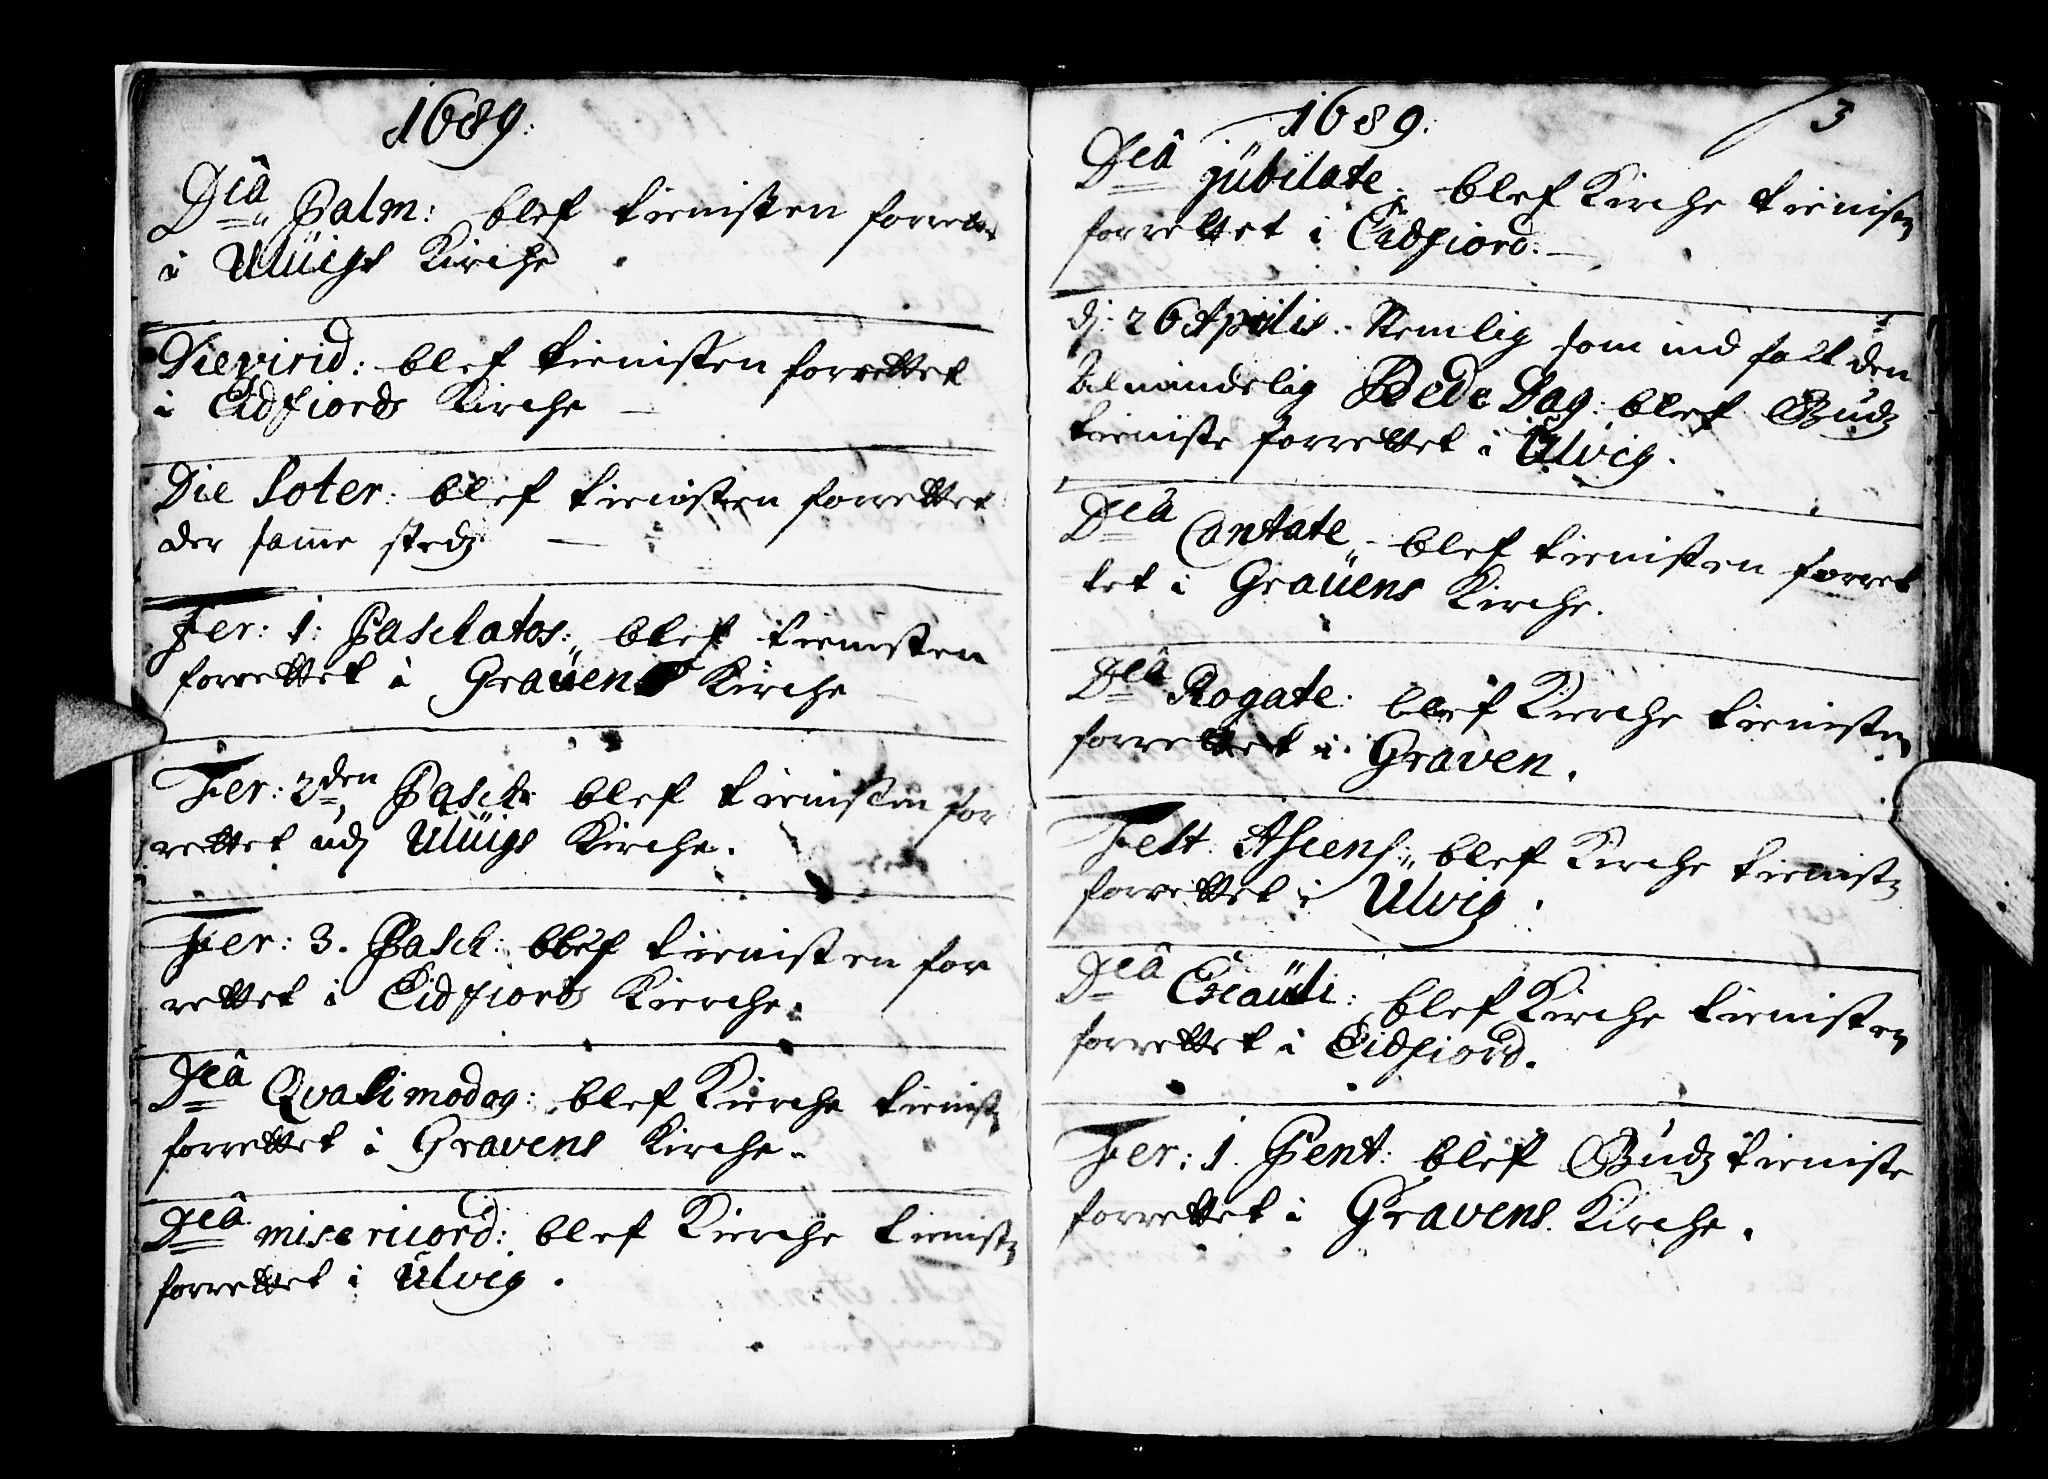 1689:
Dcâ Palm: blef tienisten forrettet
i Ulüigs Kirche
Die virid: blef tienisten forrettet
i Eidfiords Kirche —
Die Soter: blef tienisten forrettet
der samme stedz —
Fer: 1: Paschatos: blef tienisten
forrettet i Graüens Kirche
Fer: 2den Pasch: blef tienisten for
rettet udj Ulüigs Kirche.
Fer: 3. Pasch: blef tienisten for
rettet i Eidfiords Kierche.
Dcâ Qvasimodog: blef Kierche tienistz
forrettet i Gravens Kirche.
Dcâ misericord: blef Kierche tienistz
forrettet i Ulvig.
1689. 3
Dcâ jübilate: blef Kirche tienistz
forrettet i Eidfiord.—
dj: 26 Aprilis. Nemlig som ind falt den
Almindelig Bede Dag: blef Gudz
tieniste forrettet i Ulvig.
Dcâ Cantate blef tienisten forret
tet i Graüens Kirche.
Dcâ Rogate: blef Kierche tienisten
forrettet i Graven.
Fest. Ascens: blef Kirche tienistz
forrettet i Ulvig.
Dcâ Exaüdi: blef Kirche tienisten
forrettet i Eidfiord.
Fer: 1. Pent: blef Gudz tieniste
forrettet i Gravens Kirche.